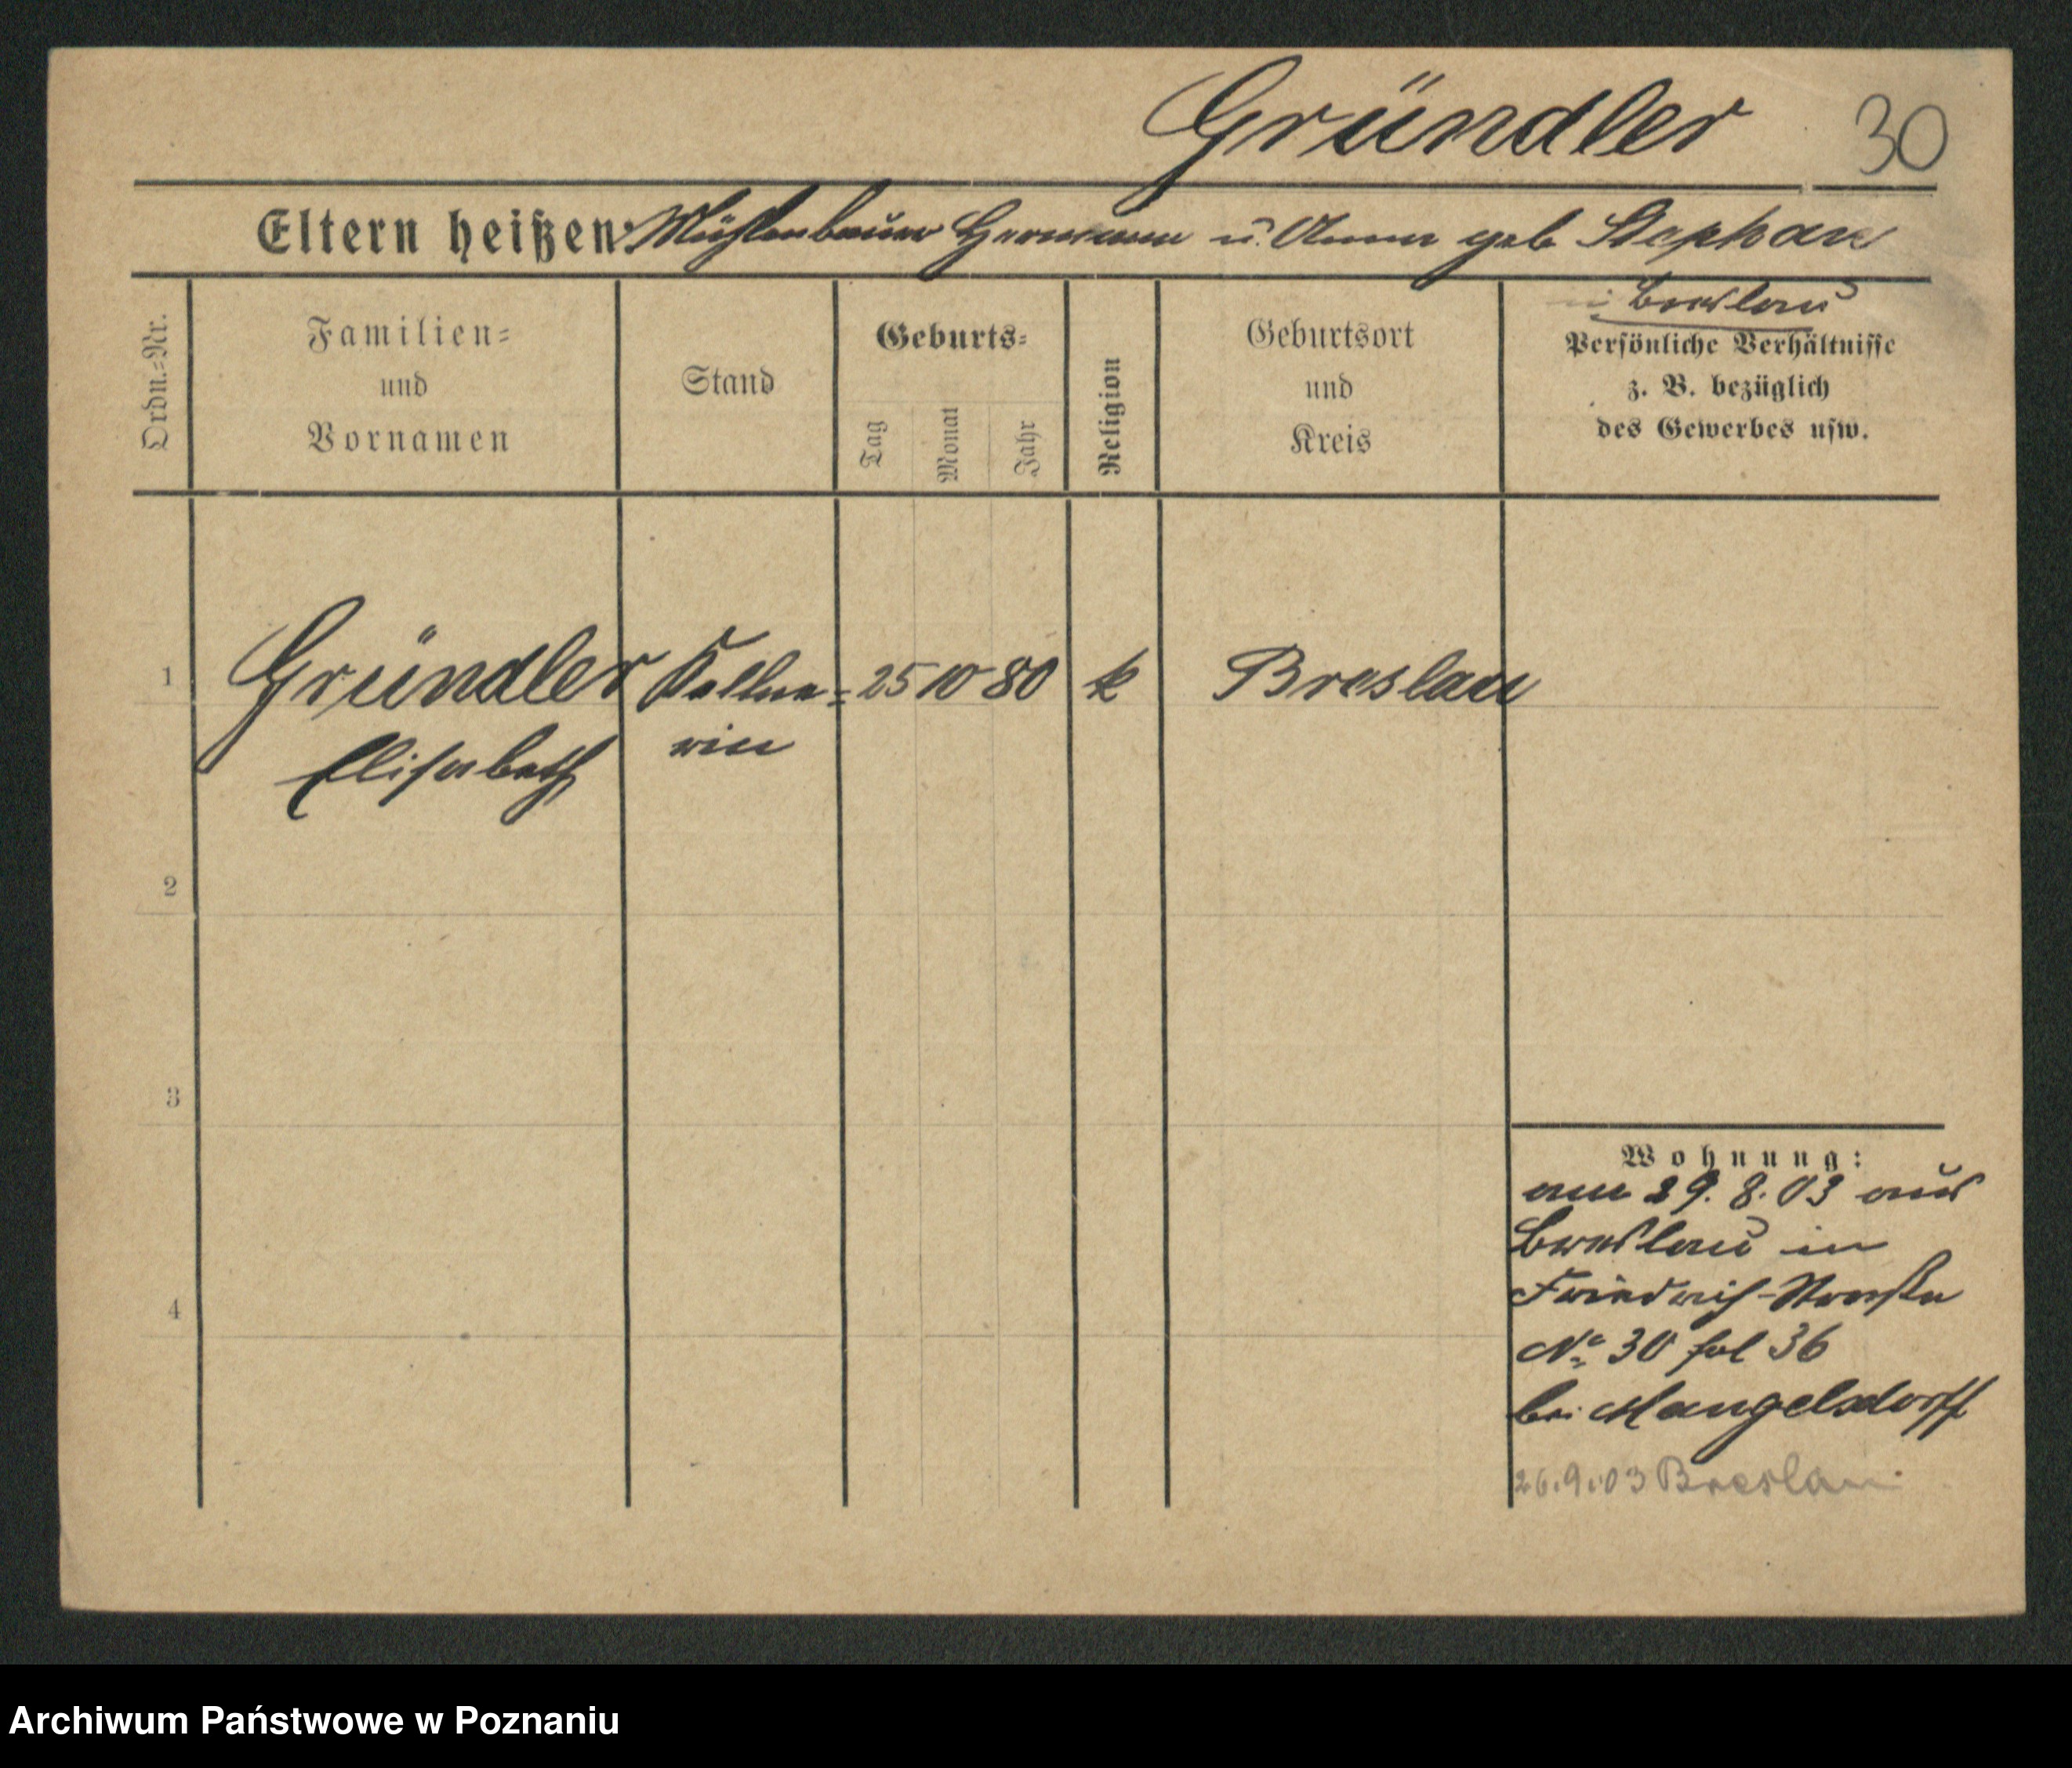 Gründler 30
Eltern heißen: Mühlenbauer Hermann u. Anna geb Stephan
in Breslau
Ordn.-Nr.
Familien-
und
Vornamen
Stand
Geburts-
Tag
Monat
Jahr
Religion
Geburtsort
und
Kreis
Persönliche Verhältnisse
z. B. bezüglich
des Gewerbes usw.
1 Gründler Kellne- 25 10 80 k Breslau
Elisabeth rin
2
3
4
Wohnung:
am 29. 8. 03 aus
Breslau in
Friedrich-Straße
No 30 fol 36
bei Mangelsdorff
26.9.03 Breslau
Archiwum Państwowe w Poznaniu